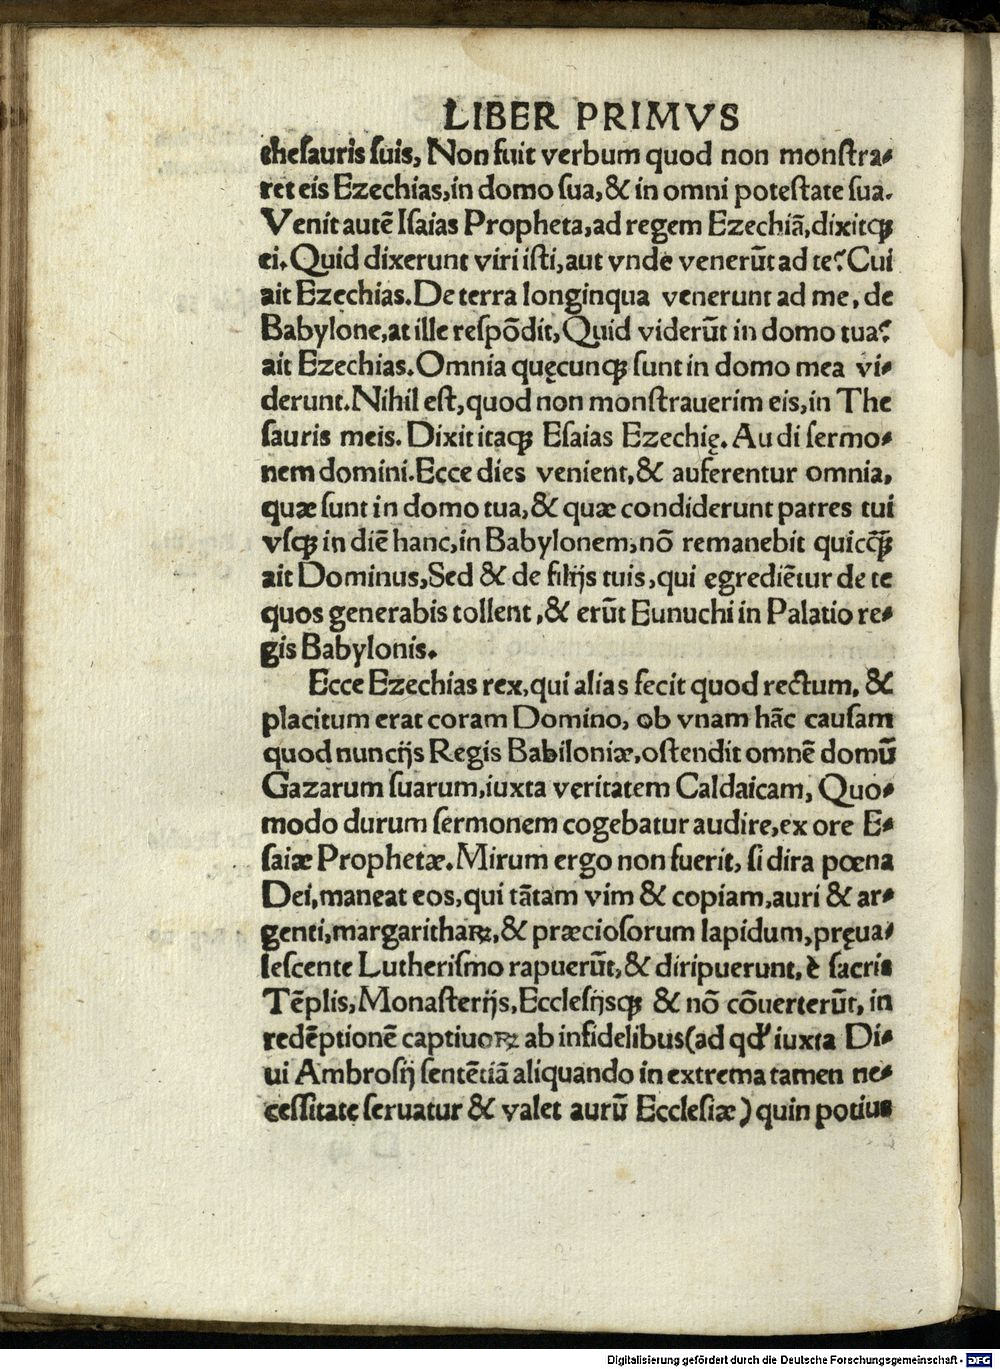 LIBER PRIMVS
thesauris suis, Non fuit verbum quod non monstra-
ret eis Ezechias, in domo sua, & in omni potestate sua.
Venit autē Isaias Propheta, ad regem Ezechiā, dixitqꝫ
ei. Quid dixerunt viri isti, aut vnde venerūt ad te? Cui
ait Ezechias. De terra longinqua venerunt ad me, de
Babylone, at ille respōdit, Quid viderūt in domo tua?
ait Ezechias. Omnia quęcunqꝫ sunt in domo mea vi-
derunt. Nihil est, quod non monstrauerim eis, in The
sauris meis. Dixit itaqꝫ Esaias Ezechię. Audi sermo-
nem domini. Ecce dies venient, & auferentur omnia,
quæ sunt in domo tua, & quæ condiderunt patres tui
vsqꝫ in diē hanc, in Babylonem, nō remanebit quicq̄ꝫ
ait Dominus, Sed & de filijs tuis, qui egrediētur de te
quos generabis tollent, & erūt Eunuchi in Palatio re-
gis Babylonis.
Ecce Ezechias rex, qui alias fecit quod rectum, &
placitum erat coram Domino, ob vnam hāc causam
quod nuncijs Regis Babiloniæ, ostendit omnē domū
Gazarum suarum, iuxta veritatem Caldaicam, Quo-
modo durum sermonem cogebatur audire, ex ore E-
saiæ Prophetæ. Mirum ergo non fuerit, si dira pœna
Dei, maneat eos, qui tātam vim & copiam, auri & ar-
genti, margarithaꝝ, & præciosorum lapidum, pręua-
lescente Lutherismo rapuerūt, & diripuerunt, è sacris
Tēplis, Monasterijs, Ecclesijsqꝫ & nō cōuerterūt, in
redēptionē captiuoꝝ ab infidelibus (ad qd' iuxta Di-
ui Ambrosij sentētiā aliquando in extrema tamen ne-
cessitate seruatur & valet aurū Ecclesiæ) quin potius
Digitalisierung gefördert durch die Deutsche Forschungsgemeinschaft - DFG